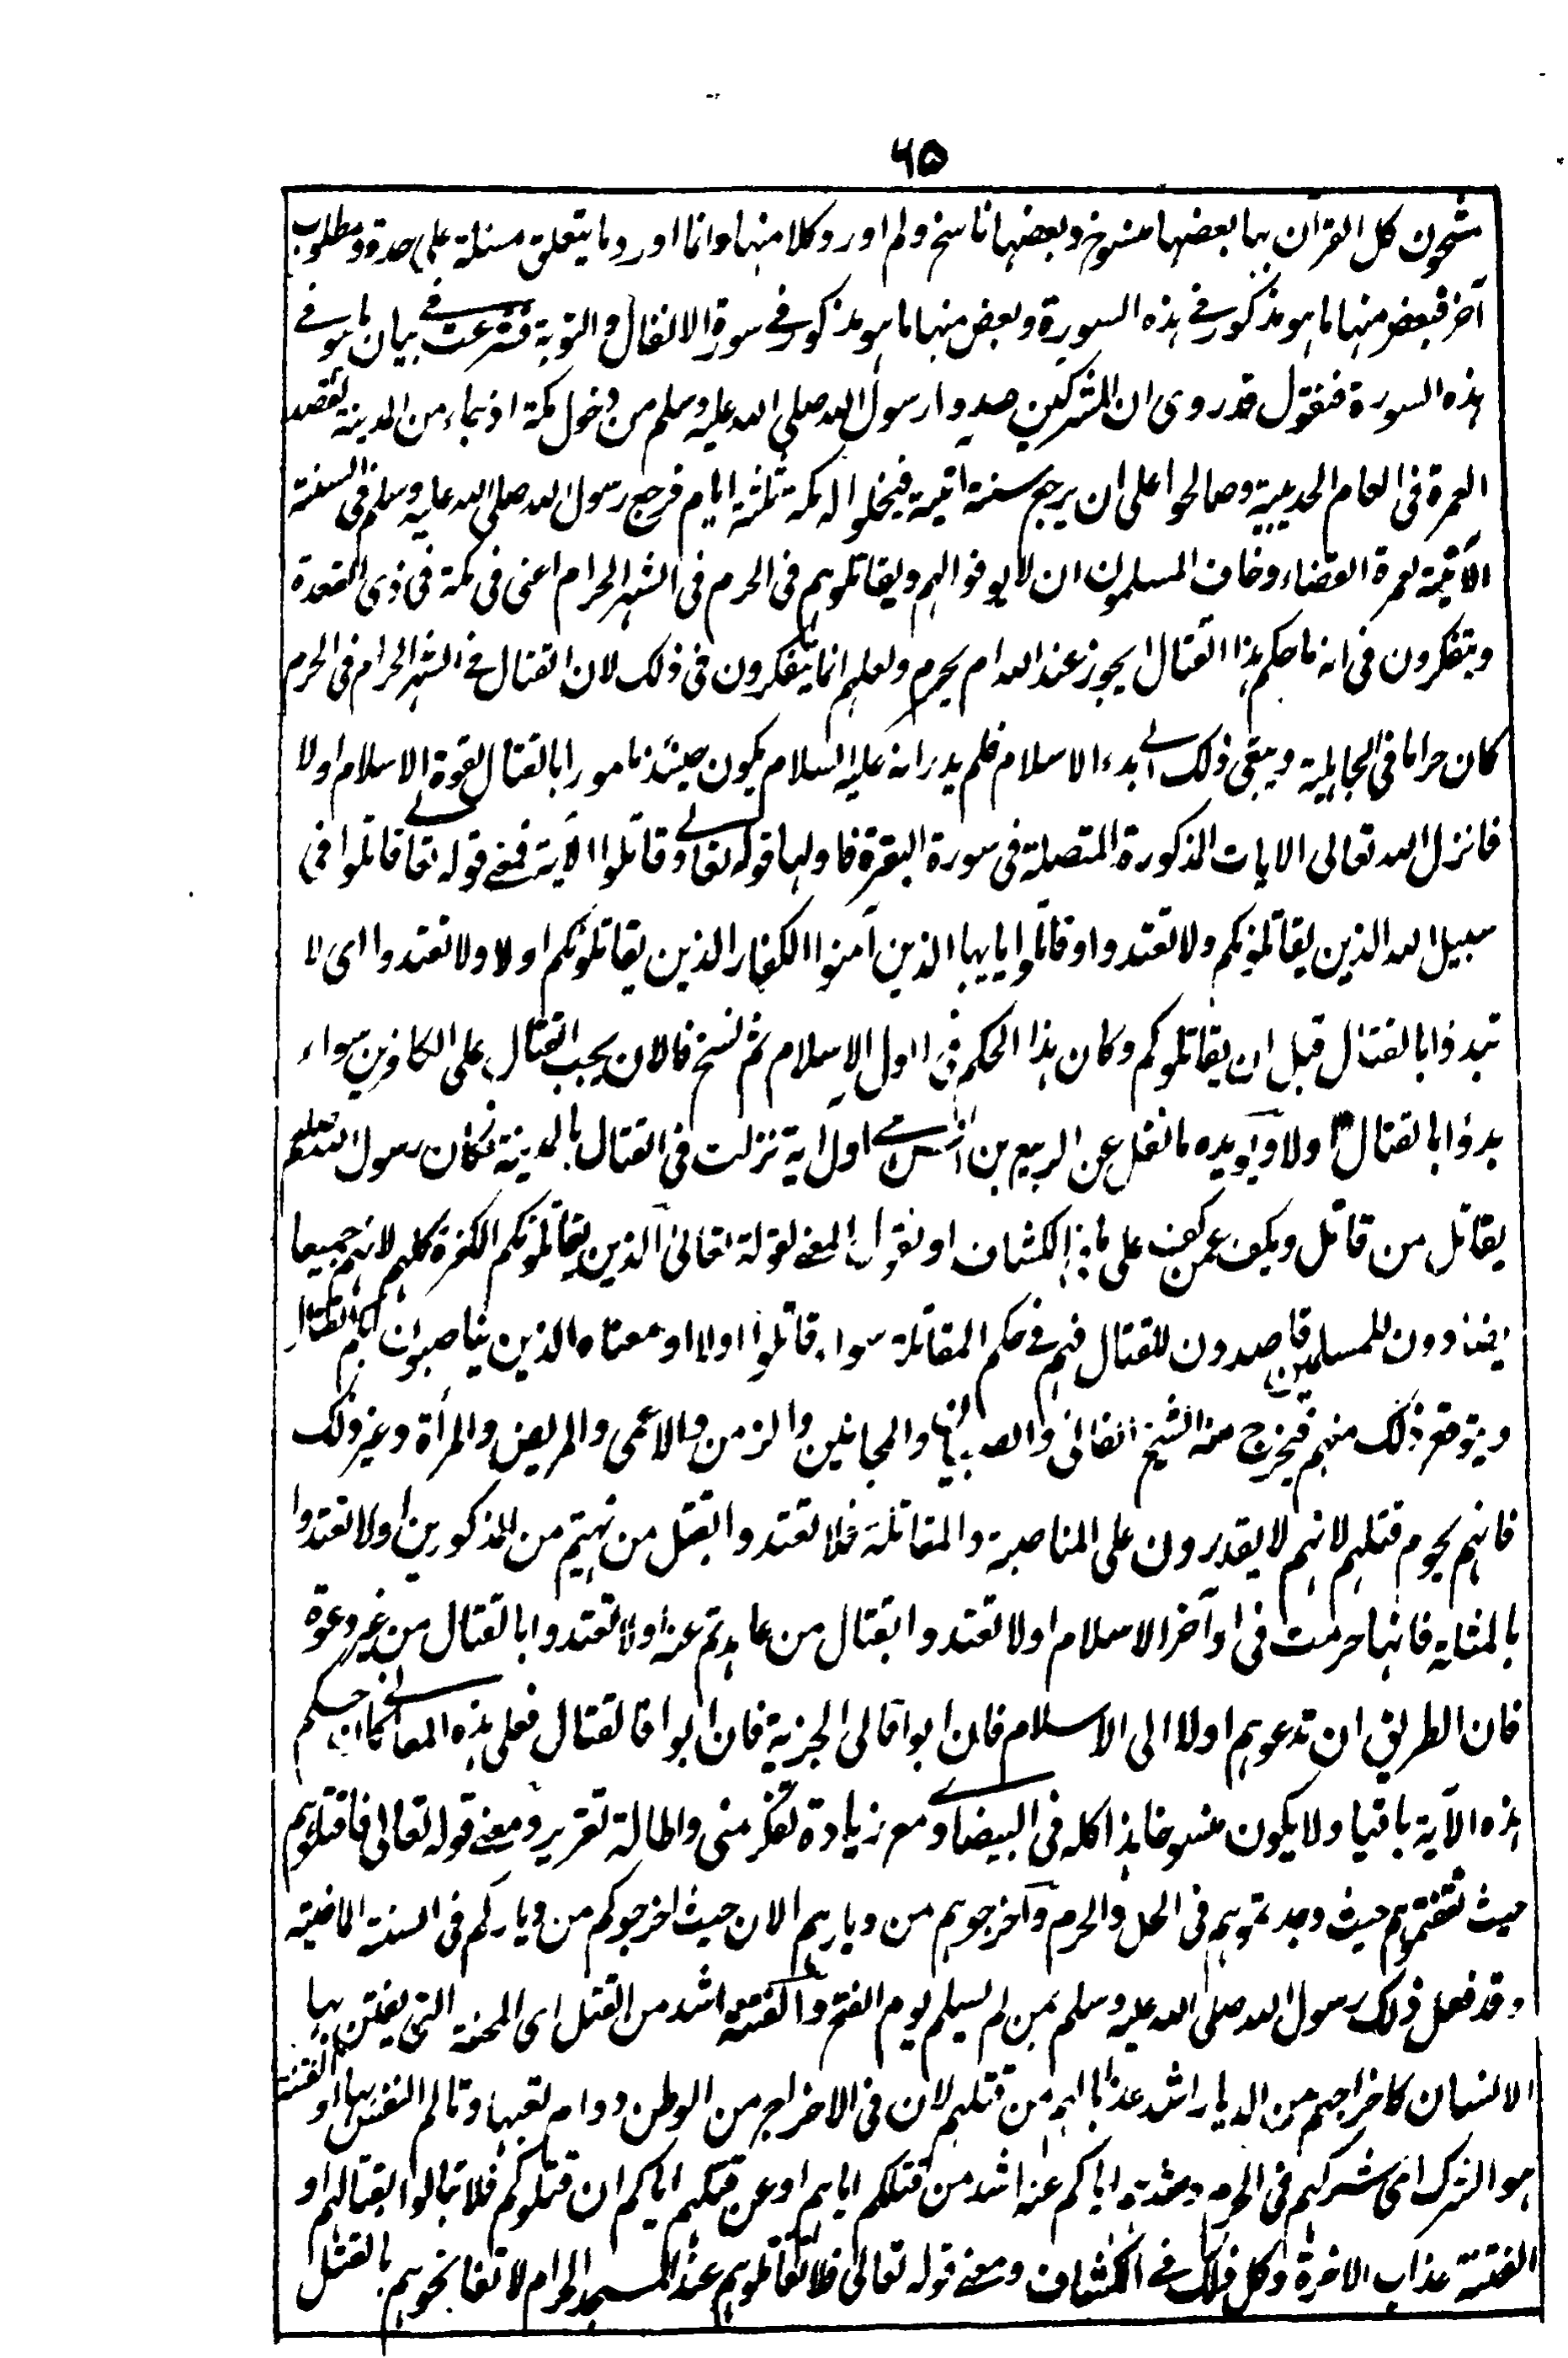 ٦٥
مشحون كل القرآن بها بعضها منسوخ وبعضها ناسخ ولم اورد كلا منها وانما اورد ما يتعلق مسئلة على حدة ومطلوب
آخر فبعض منها ما هو مذكور في هذه السورة وبعض منها ما هو مذكور في سورة الانفال والتوبة فشرعت في بيان ما هو في
هذه السورة فنقول قد روى ان المشركين صدوا رسول الله صلى الله عليه وسلم من دخول مكة اذ جاء من المدينة لقصد
العمرة فى العام الحديبية وصالحوا على ان يرجع سنة اتية فيخلوا له مكة ثلثة ايام فرجع رسول الله صلى الله عليه وسلم فى السنة
الآتية لعمرة القضاء وخاف المسلمون ان لا يوفوا لهم ويقاتلوهم فى الحرم فى الشهر الحرام اعنى فى مكة فى ذى القعدة
ويتفكرون فى انه ما حكم هذا القتال ايجوز عند الله ام يحرم ولعلهم انما يتفكرون فى ذلك لان القتال في الشهر الحرام فى الحرم
كان حراما فى الجاهلية ويبقى ذلك الى بدء الاسلام فلم يدر انه عليه السلام يكون حينئذ مامورا بالقتال لقوة الاسلام اولا
فانزل الله تعالى الايات المذكورة المتصلة فى سورة البقرة فاولها قوله تعالى وقاتلوا الآية فمعنى قوله تعالى قاتلوا فى
سبيل الله الذين يقاتلونكم ولا تعتدوا وقاتلوا يايها الذين آمنوا الكفار الذين يقاتلونكم اولا ولا تعتدوا اى لا
تبدؤا بالقتال قبل ان يقاتلوكم وكان هذا الحكم فى اول الاسلام ثم نسخ فالان يجب القتال على الكافرين سواء
بدؤا بالقتال اولا ويؤيده ما نقل عن الربيع بن انس هى اول اية نزلت فى القتال بالمدينة فكان رسول الله صلعم
يقاتل من قاتل ويكف عمن كف على ما فى الكشاف او نقول المعنى لقوله تعالى الذين يقاتلونكم الكفرة كلهم لانهم جميعا
يضادون للمسلمين قاصدون للقتال فهم في حكم المقاتلة سواء قاتلوا اولا او معناه الذين يناصبون لكم القتال
ويتوقع ذلك منهم فيخرج منه الشيخ الفانى والصبيان والمجانين والزمن والاعمى والمريض والمرأة وغير ذلك
فانهم يحرم قتلهم لانهم لا يقدرون على المناصبة والمقاتلة فلا تعتدوا بقتل من نهيتم من المذكورين او لا تعتدوا
بالمثلية فانها حرمت فى اواخر الاسلام او لا تعتدوا بقتال من عاهدتم عنه او لا تعتدوا بالقتال من غير دعوة
فان الطريق ان تدعوهم اولا الى الاسلام فان ابوا فالى الجزية فان ابوا فالقتال فعلى هذه المعانى كان حكم
هذه الآية باقيا ولا يكون منسوخا هذا كله فى البيضاوى مع زيادة تفكر منى واطالة تقرير ومعنى قوله تعالى فاقتلوهم
حيث ثقفتموهم حيث وجدتموهم فى الحل والحرم وآخرجوهم من ديارهم الان حيث اخرجوكم من دياركم فى السنة الماضية
وقد فعل ذلك رسول الله صلى الله عليه وسلم بمن لم يسلم يوم الفتح والفتنة اشد من القتل اى المحنة التى يفتتن بها
الانسان كاخراجهم من الديار اشد عذابا لهم من قتلهم لان فى الاخراج من الوطن دوام تعبها وتالم النفس بها او الفتنة
هو الشرك اى شركهم فى الحرم وصدهم اياكم عنه اشد من قتلكم اياهم او عن قتلهم اياكم ان قتلوكم فلا تبالوا بقتالهم او
الفتنة عذاب الاخرة وكل ذلك في الكشاف ومعنى قوله تعالى فلا تقاتلوهم عند المسجد الحرام لا تفاتحوهم بالقتل